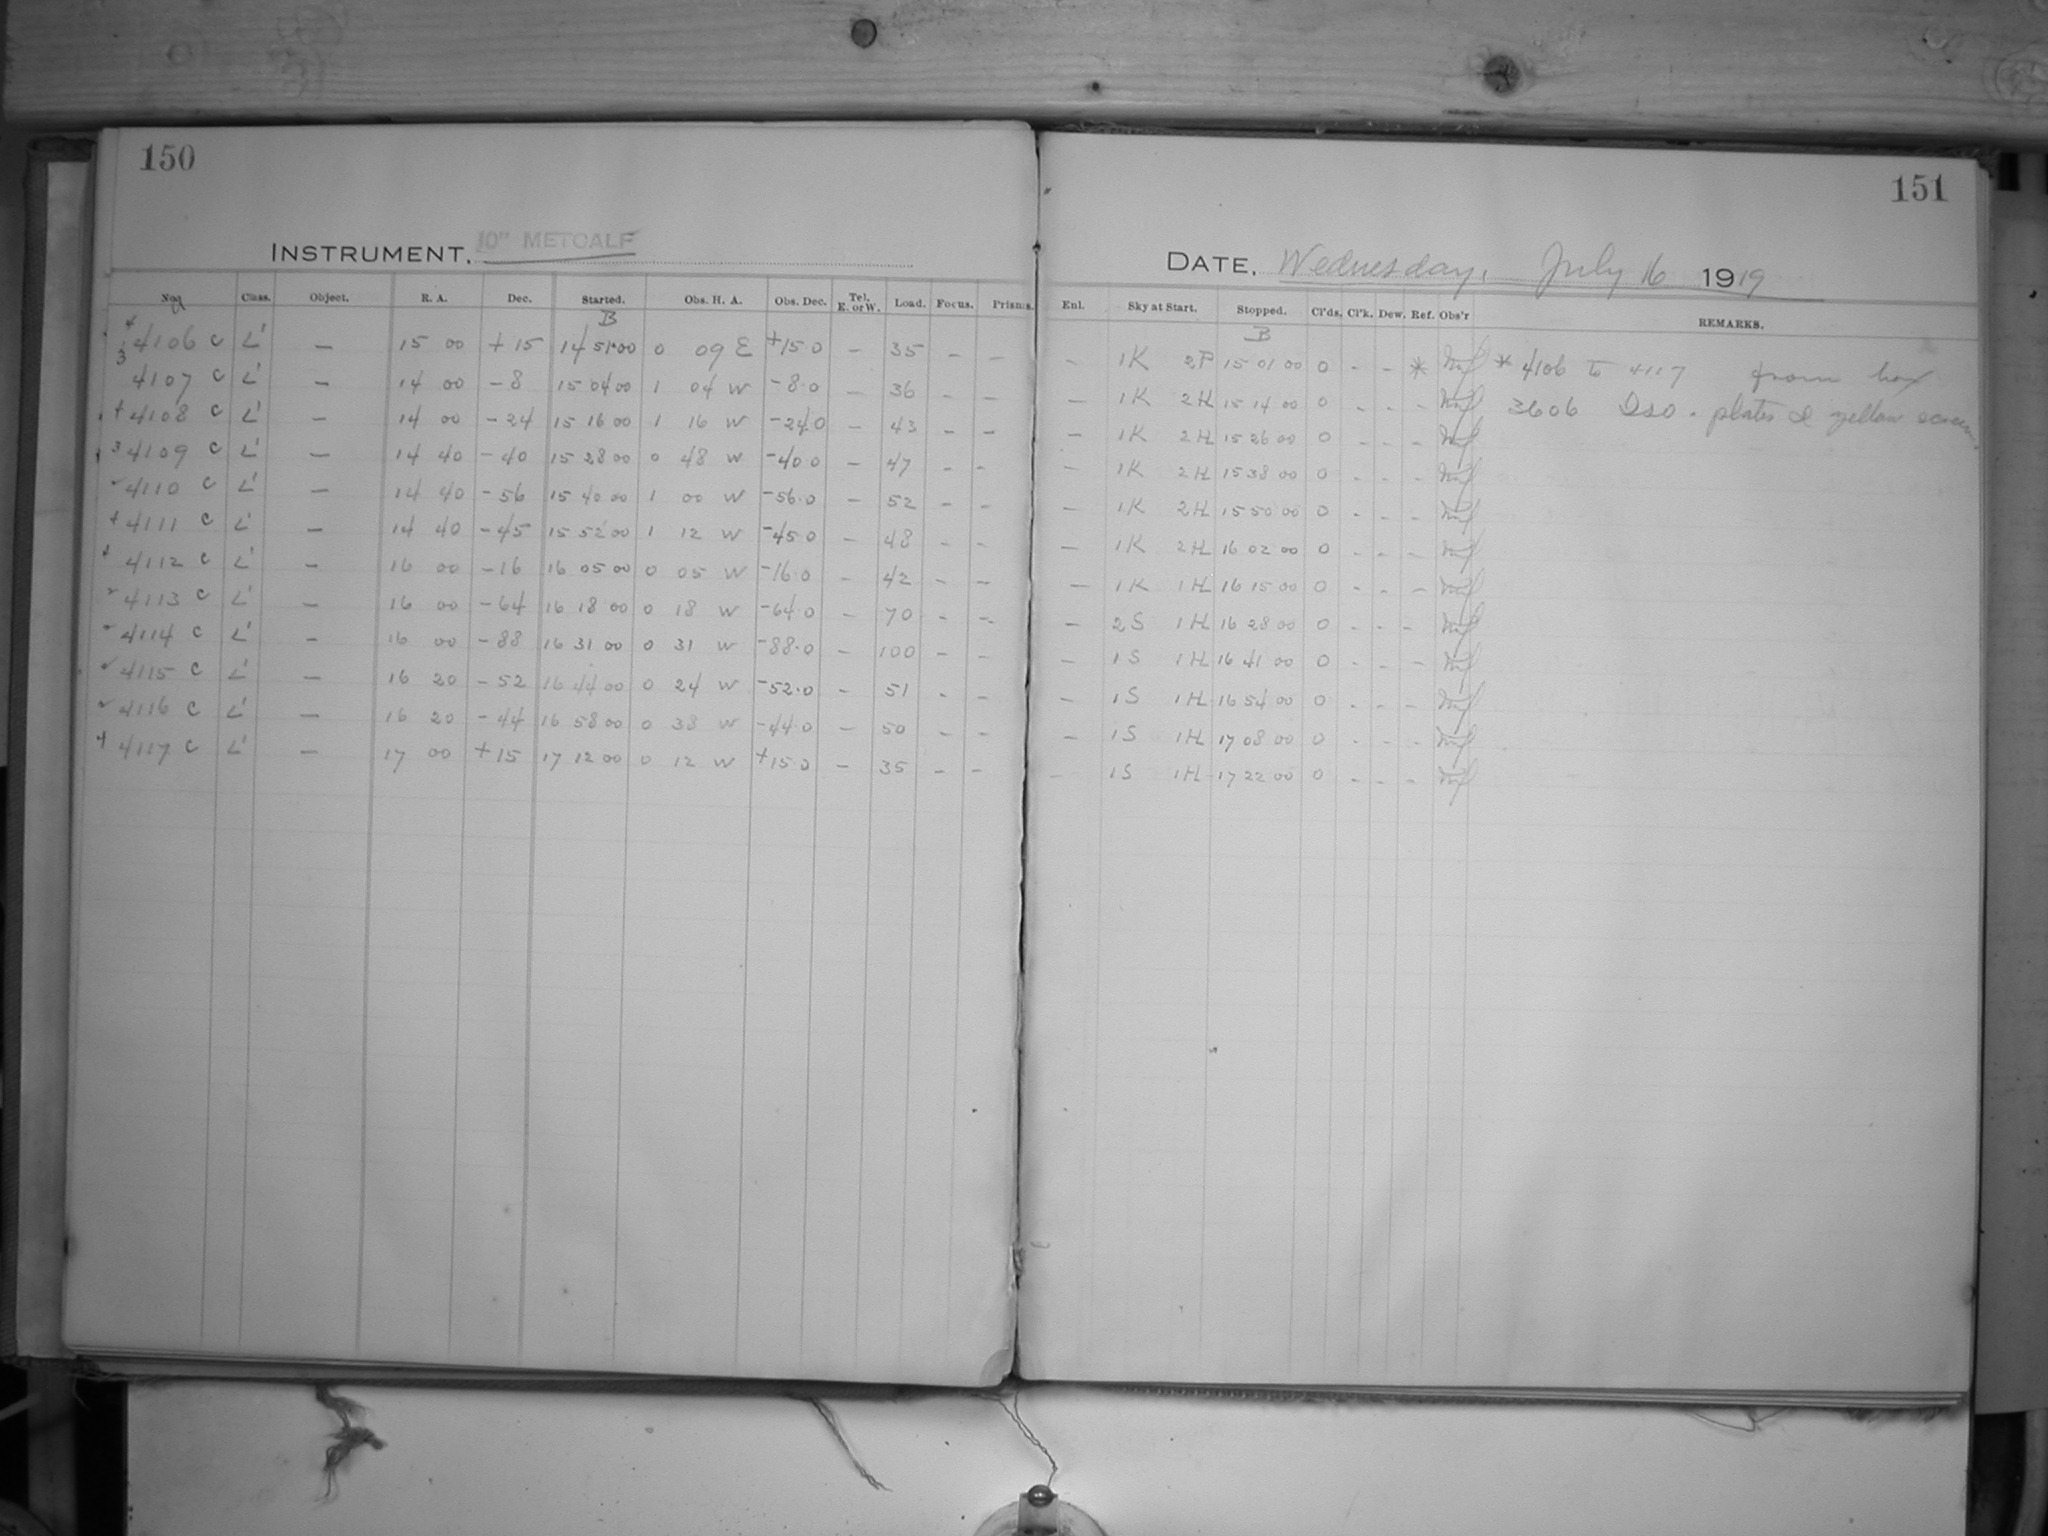 150
151
INSTRUMENT, 10" METCALF
DATE, Wednesday, July 16 1919
No. Class. Object. R. A. Dec. Started. Obs. H. A. Obs. Dec. Tel. E. or W. Load. Focus. Prisms. Enl. Sky at Start. Stopped. Cl'ds. Cl'k. Dew. Ref. Obs'r REMARKS.
B B
4106 C L' — 15 00 +15 14 51 00 0 09 E +15.0 — 35 — — — 1K 2P 15 01 00 0 - - * * 4106 to 4117 from box
3 4107 C L' — 14 00 -8 15 04 00 1 04 W -8.0 — 36 — — — 1K 2H 15 14 00 0 - - - 3606 Iso. plates & yellow screen
+ 4108 C L' — 14 00 -24 15 16 00 1 16 W -24.0 — 43 — — — 1K 2H 15 26 00 0 - - -
3 4109 C L' — 14 40 -40 15 28 00 0 48 W -40.0 — 47 - - — 1K 2H 15 38 00 0 - - -
4110 C L' — 14 40 -56 15 40 00 1 00 W -56.0 — 52 - - — 1K 2H 15 50 00 0 - - -
+ 4111 C L' — 14 40 -45 15 52 00 1 12 W -45.0 — 48 - - — 1K 2H 16 02 00 0 - - -
4112 C L' — 16 00 -16 16 05 00 0 05 W -16.0 - 42 - - — 1K 1H 16 15 00 0 - - -
4113 C L' — 16 00 -64 16 18 00 0 18 W -64.0 - 70 - - — 2S 1H 16 28 00 0 - - -
4114 C L' - 16 00 -88 16 31 00 0 31 W -88.0 - 100 - - — 1S 1H 16 41 00 0 - - -
4115 C L' — 16 20 -52 16 44 00 0 24 W -52.0 - 51 - - — 1S 1H 16 54 00 0 - - -
4116 C L' — 16 20 -44 16 58 00 0 38 W -44.0 — 50 - - — 1S 1H 17 08 00 0 - - -
+ 4117 C L' — 17 00 +15 17 12 00 0 12 W +15.0 — 35 - - - 1S 1H 17 22 00 0 - - -